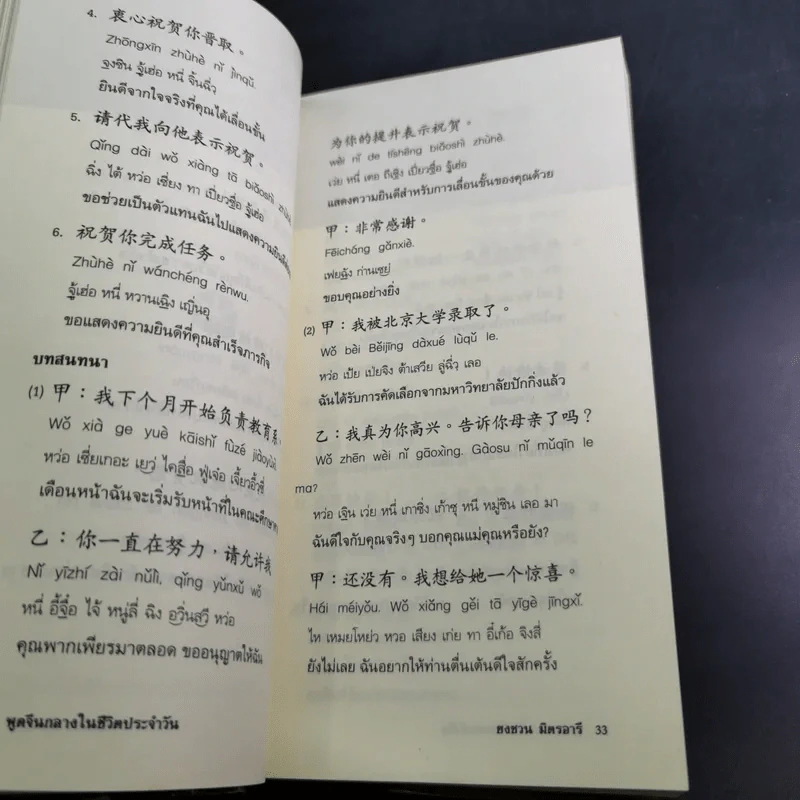 4. 衷心祝贺你晋取。
Zhōngxīn zhùhè nǐ jìnqǔ.
ฐงซิน จู้เฮ่อ หนี่ จิ้นฉี่ว
ยินดีจากใจจริงที่คุณได้เลื่อนขั้น
5. 请代我向他表示祝贺。
Qǐng dài wǒ xiàng tā biǎoshì zhùhè
ฉิ่ง ไต้ หว่อ เซี่ยง ทา เปี่ยวซื่อ จู้เฮ่อ
ขอช่วยเป็นตัวแทนฉันไปแสดงความยินดี
6. 祝贺你完成任务。
Zhùhè nǐ wánchéng rènwu.
จู้เฮ่อ หนี่ หวานเฉิง เญิ่นอุ
ขอแสดงความยินดีที่คุณสำเร็จภารกิจ
บทสนทนา
(1) 甲：我下个月开始负责教育系
Wǒ xià ge yuè kāishǐ fùzé jiàoyù
หว่อ เซี่ยเกอะ เยว่ ไคสื่อ ฟู่เจ๋อ เจี้ยวอวี้ซี่
เดือนหน้าฉันจะเริ่มรับหน้าที่ในคณะศึกษา
乙：你一直在努力，请允许我
Nǐ yīzhí zài nǔlì, qǐng yǔnxǔ wǒ
หนี่ อี้จื๋อ ไจ้ หนู่ลี่ ฉิง อวิ่นสวี่ หว่อ
คุณพากเพียรมาตลอด ขออนุญาตให้ฉัน
พูดจีนกลางในชีวิตประจำวัน
为你的提升表示祝贺。
wèi nǐ de tíshēng biǎoshì zhùhè.
เว่ย หนี่ เตอ ถีเซิง เปี่ยวซื่อ จู้เฮ่อ
แสดงความยินดีสำหรับการเลื่อนขั้นของคุณด้วย
甲：非常感谢。
Fēicháng gǎnxiè.
เฟยฉัง ก่านเซฺย่
ขอบคุณอย่างยิ่ง
(2) 甲：我被北京大学录取了。
Wǒ bèi Běijīng dàxué lùqǔ le.
หว่อ เป้ย เป่ยจิง ต้าเสวีย ลู่ฉี่ว เลอ
ฉันได้รับการคัดเลือกจากมหาวิทยาลัยปักกิ่งแล้ว
乙：我真为你高兴。告诉你母亲了吗？
Wǒ zhēn wèi nǐ gāoxìng. Gàosu nǐ mǔqīn le
ma?
หว่อ เจิน เว่ย หนี่ เกาซิ่ง เก้าซุ หนี หมู่ชิน เลอ มา
ฉันดีใจกับคุณจริงๆ บอกคุณแม่คุณหรือยัง?
甲：还没有。我想给她一个惊喜。
Hái méiyǒu. Wǒ xiǎng gěi tā yīgè jīngxǐ.
ไห เหมยโหย่ว หวอ เสียง เก่ย ทา อี๋เก้อ จิงสี่
ยังไม่เลย ฉันอยากให้ท่านตื่นเต้นดีใจสักครั้ง
ฮงชวน มิตรอารี 33